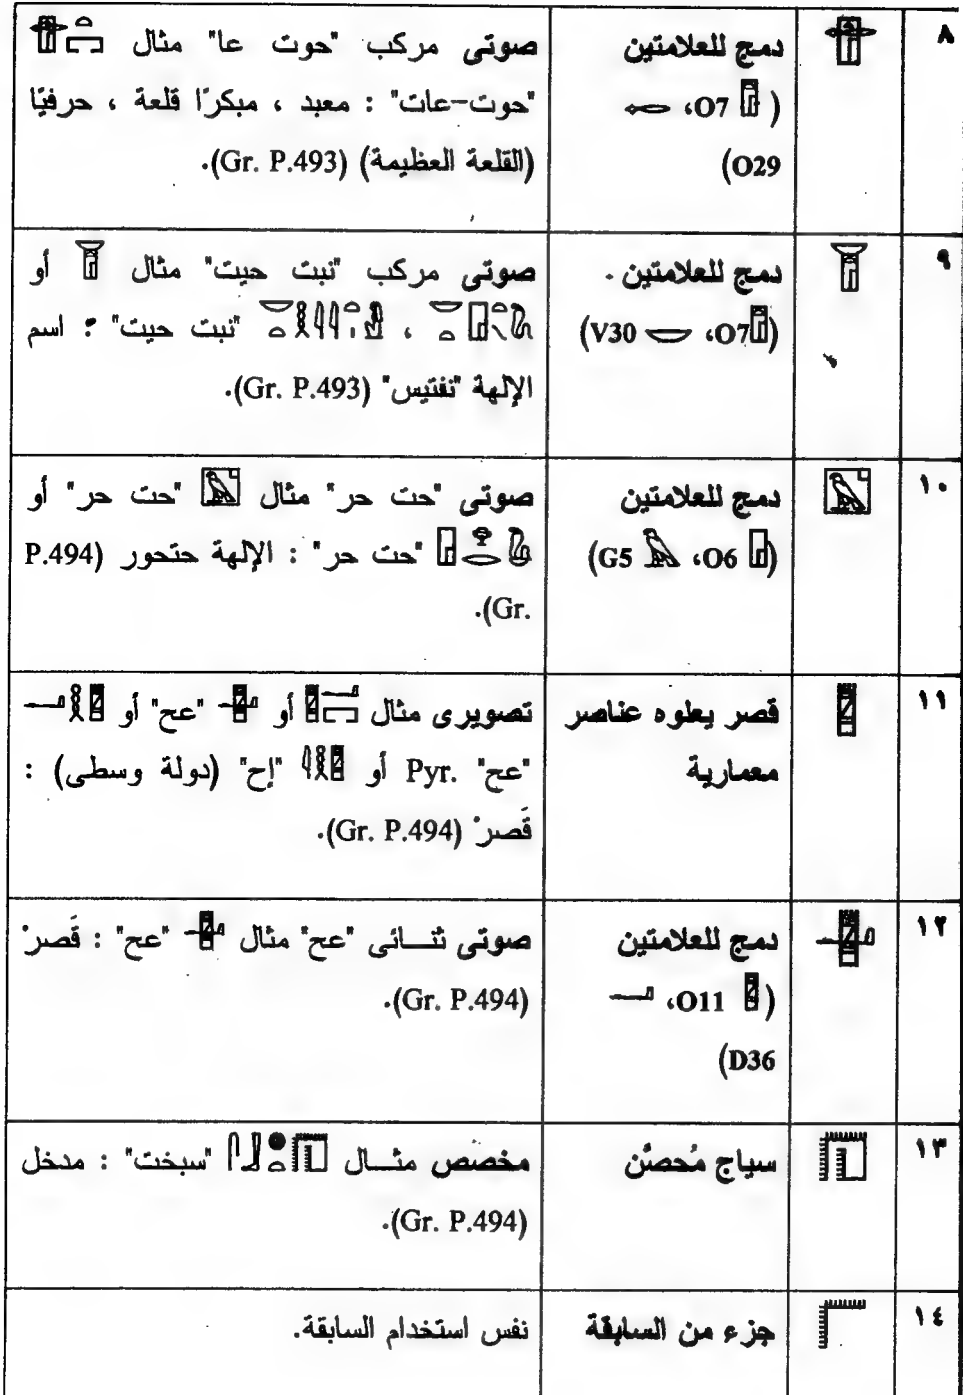 ٨
دمج للعلامتين
( O7، 
O29)
صوتى مركب "حوت عا" مثال
"حوت-عات" : معبد ، مبكرًا قلعة ، حرفيًا
(القلعة العظيمة) (Gr. P.493).
٩
دمج للعلامتين .
(O7، V30)
صوتى مركب "نبت حيت" مثال أو
، "نبت حيت" : اسم
الإلهة "نفتيس" (Gr. P.493).
١٠
دمج للعلامتين
(O6، G5)
صوتى "حت حر" مثال "حت حر" أو
"حت حر" : الإلهة حتحور (P.494
Gr.).
١١
قصر يعلوه عناصر
معمارية
تصويرى مثال أو "عح" أو
"عح" Pyr. أو "إح" (دولة وسطى) :
قَصرْ (Gr. P.494).
١٢
دمج للعلامتين
( O11، 
D36)
صوتى ثنائى "عح" مثال "عح" : قَصرْ
(Gr. P.494).
١٣
سياج مُحصَّن
مخصص مثال "سبخت" : مدخل
(Gr. P.494).
١٤
جزء من السابقة
نفس استخدام السابقة.